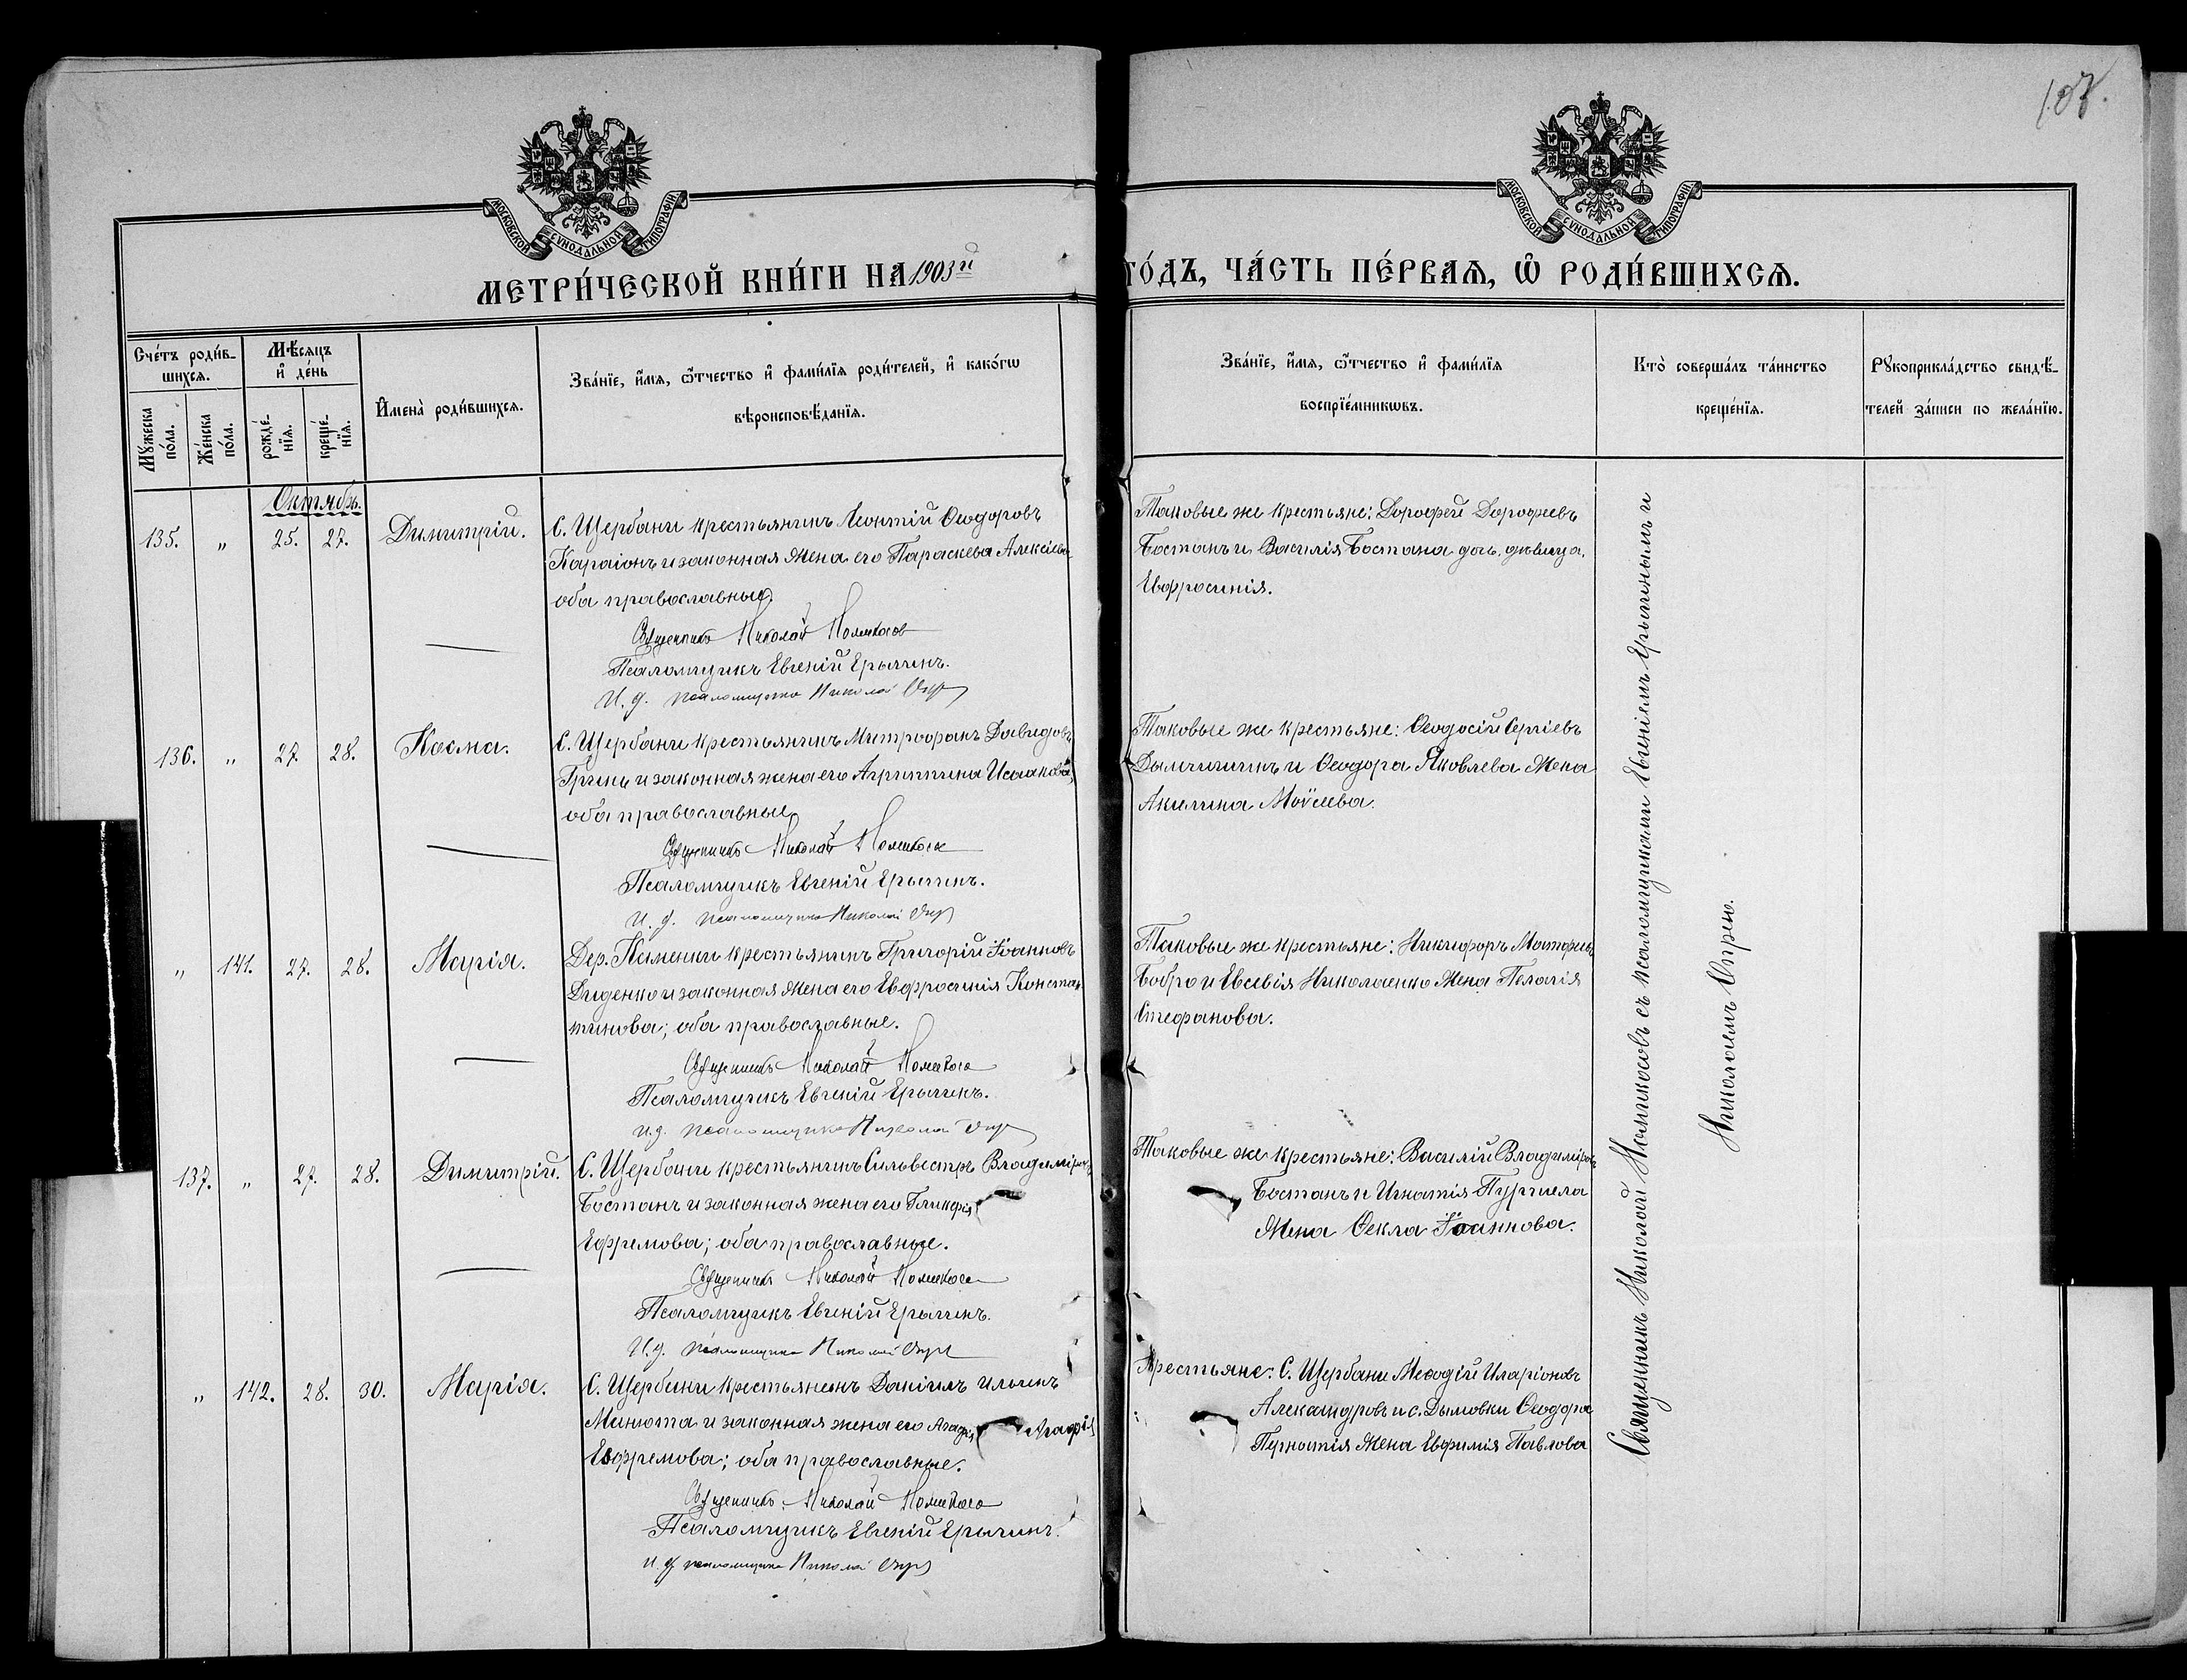 107.
МОСКОВСКОЙ СѴНОДАЛЬНОЙ ТИПОГРАФІИ
МОСКОВСКОЙ СѴНОДАЛЬНОЙ ТИПОГРАФІИ
МЕТРИ́ЧЕСКОЙ КНИ́ГИ НА 1903й ГО́ДЪ, ЧА́СТЬ ПЕ́РВАѦ, Ѡ҆ РОДИ́ВШИХСѦ.
Сче́тъ роди́в-
шихсѧ.
Мꙋ́жеска по́ла.
Же́нска по́ла.
Мѣ́сяцъ
и҆ де́нь
рожде́-
нїѧ.
креще́-
нїѧ.
И҆мена̀ роди́вшихсѧ.
Зва́нїе, и҆́мѧ, ѻ҆́тчество и҆ фами́лїѧ роди́телей, и҆ како́гѡ
вѣроисповѣ́данїѧ.
Зва́нїе, и҆́мѧ, ѻ҆́тчество и҆ фами́лїѧ
воспрїе́мникѡвъ.
Кто̀ соверша́лъ та́инство
креще́нїѧ.
Рꙋкоприкла́дство свидѣ́-
телей за́писи по жела́нїю.
Октябрь.
135. " 25. 27. Димитрій.
С. Щербани крестьянинъ Леонтій Ѳеодоровъ
Караіонъ и законная жена его Параскева Алексіева
оба православные.
Священникъ Николай
Псаломщикъ Евгеній Ерыгинъ.
И. д. псаломщика Николай Опря
Таковые же крестьяне: Дорофей Дорофеевъ
Бостанъ и Василія Бостана дочь девица
Евфросинія.
136. " 27. 28. Косма.
С. Щербани крестьянинъ Митрофанъ Давидовъ
Гринь и законная жена его Агриппина Исаакова,
оба православные
Священникъ Николай
Псаломщикъ Евгеній Ерыгинъ.
И. д. псаломщика Николай Опря
Таковые же крестьяне: Ѳеодосій Сергіевъ
и Ѳеодора Яковлева жена
Акилина Моѵсеева.
" 141. 27. 28. Марія.
Дер. Каменки крестьянинъ Григорій Іоанновъ
Диденко и законная жена его Евфросинія Констан
тинова; оба православные.
Священникъ Николай
Псаломщикъ Евгеній Ерыгинъ.
и. д. псаломщика Николай Опря
Таковые же крестьяне: Никифоръ Матфеевъ
Бобро и Евсевія Николаенко жена Пелагія
Стефанова.
137. " 27. 28. Димитрій.
С. Щербани крестьянинъ Сильвестръ Владиміровъ
Бостанъ и законная жена его Гликерія
Ефремова; оба православные.
Священникъ Николай
Псаломщикъ Евгеній Ерыгинъ.
И. д. псаломщика Николай Опря
Таковые же крестьяне: Василій Владиміровъ
Бостанъ и Игнатія Пургиела
жена Ѳекла Іоаннова.
" 142. 28. 30. Марія.
С. Щербани крестьянинъ Даніилъ Ильинъ
Минюта и законная жена его Агафія Агафія
Ефремова; оба православные.
Священникъ Николай
Псаломщикъ Евгеній Ерыгинъ.
и. д. псаломщика Николай Опря
Крестьяне: С. Щербани Меѳодій Иларіоновъ
Александровъ и с. Дымовки Ѳеодора
жена Евфимія Павлова
Священникъ Николай съ псаломщиками Евгеніемъ Ерыгинымъ и
Николаемъ Опрею.